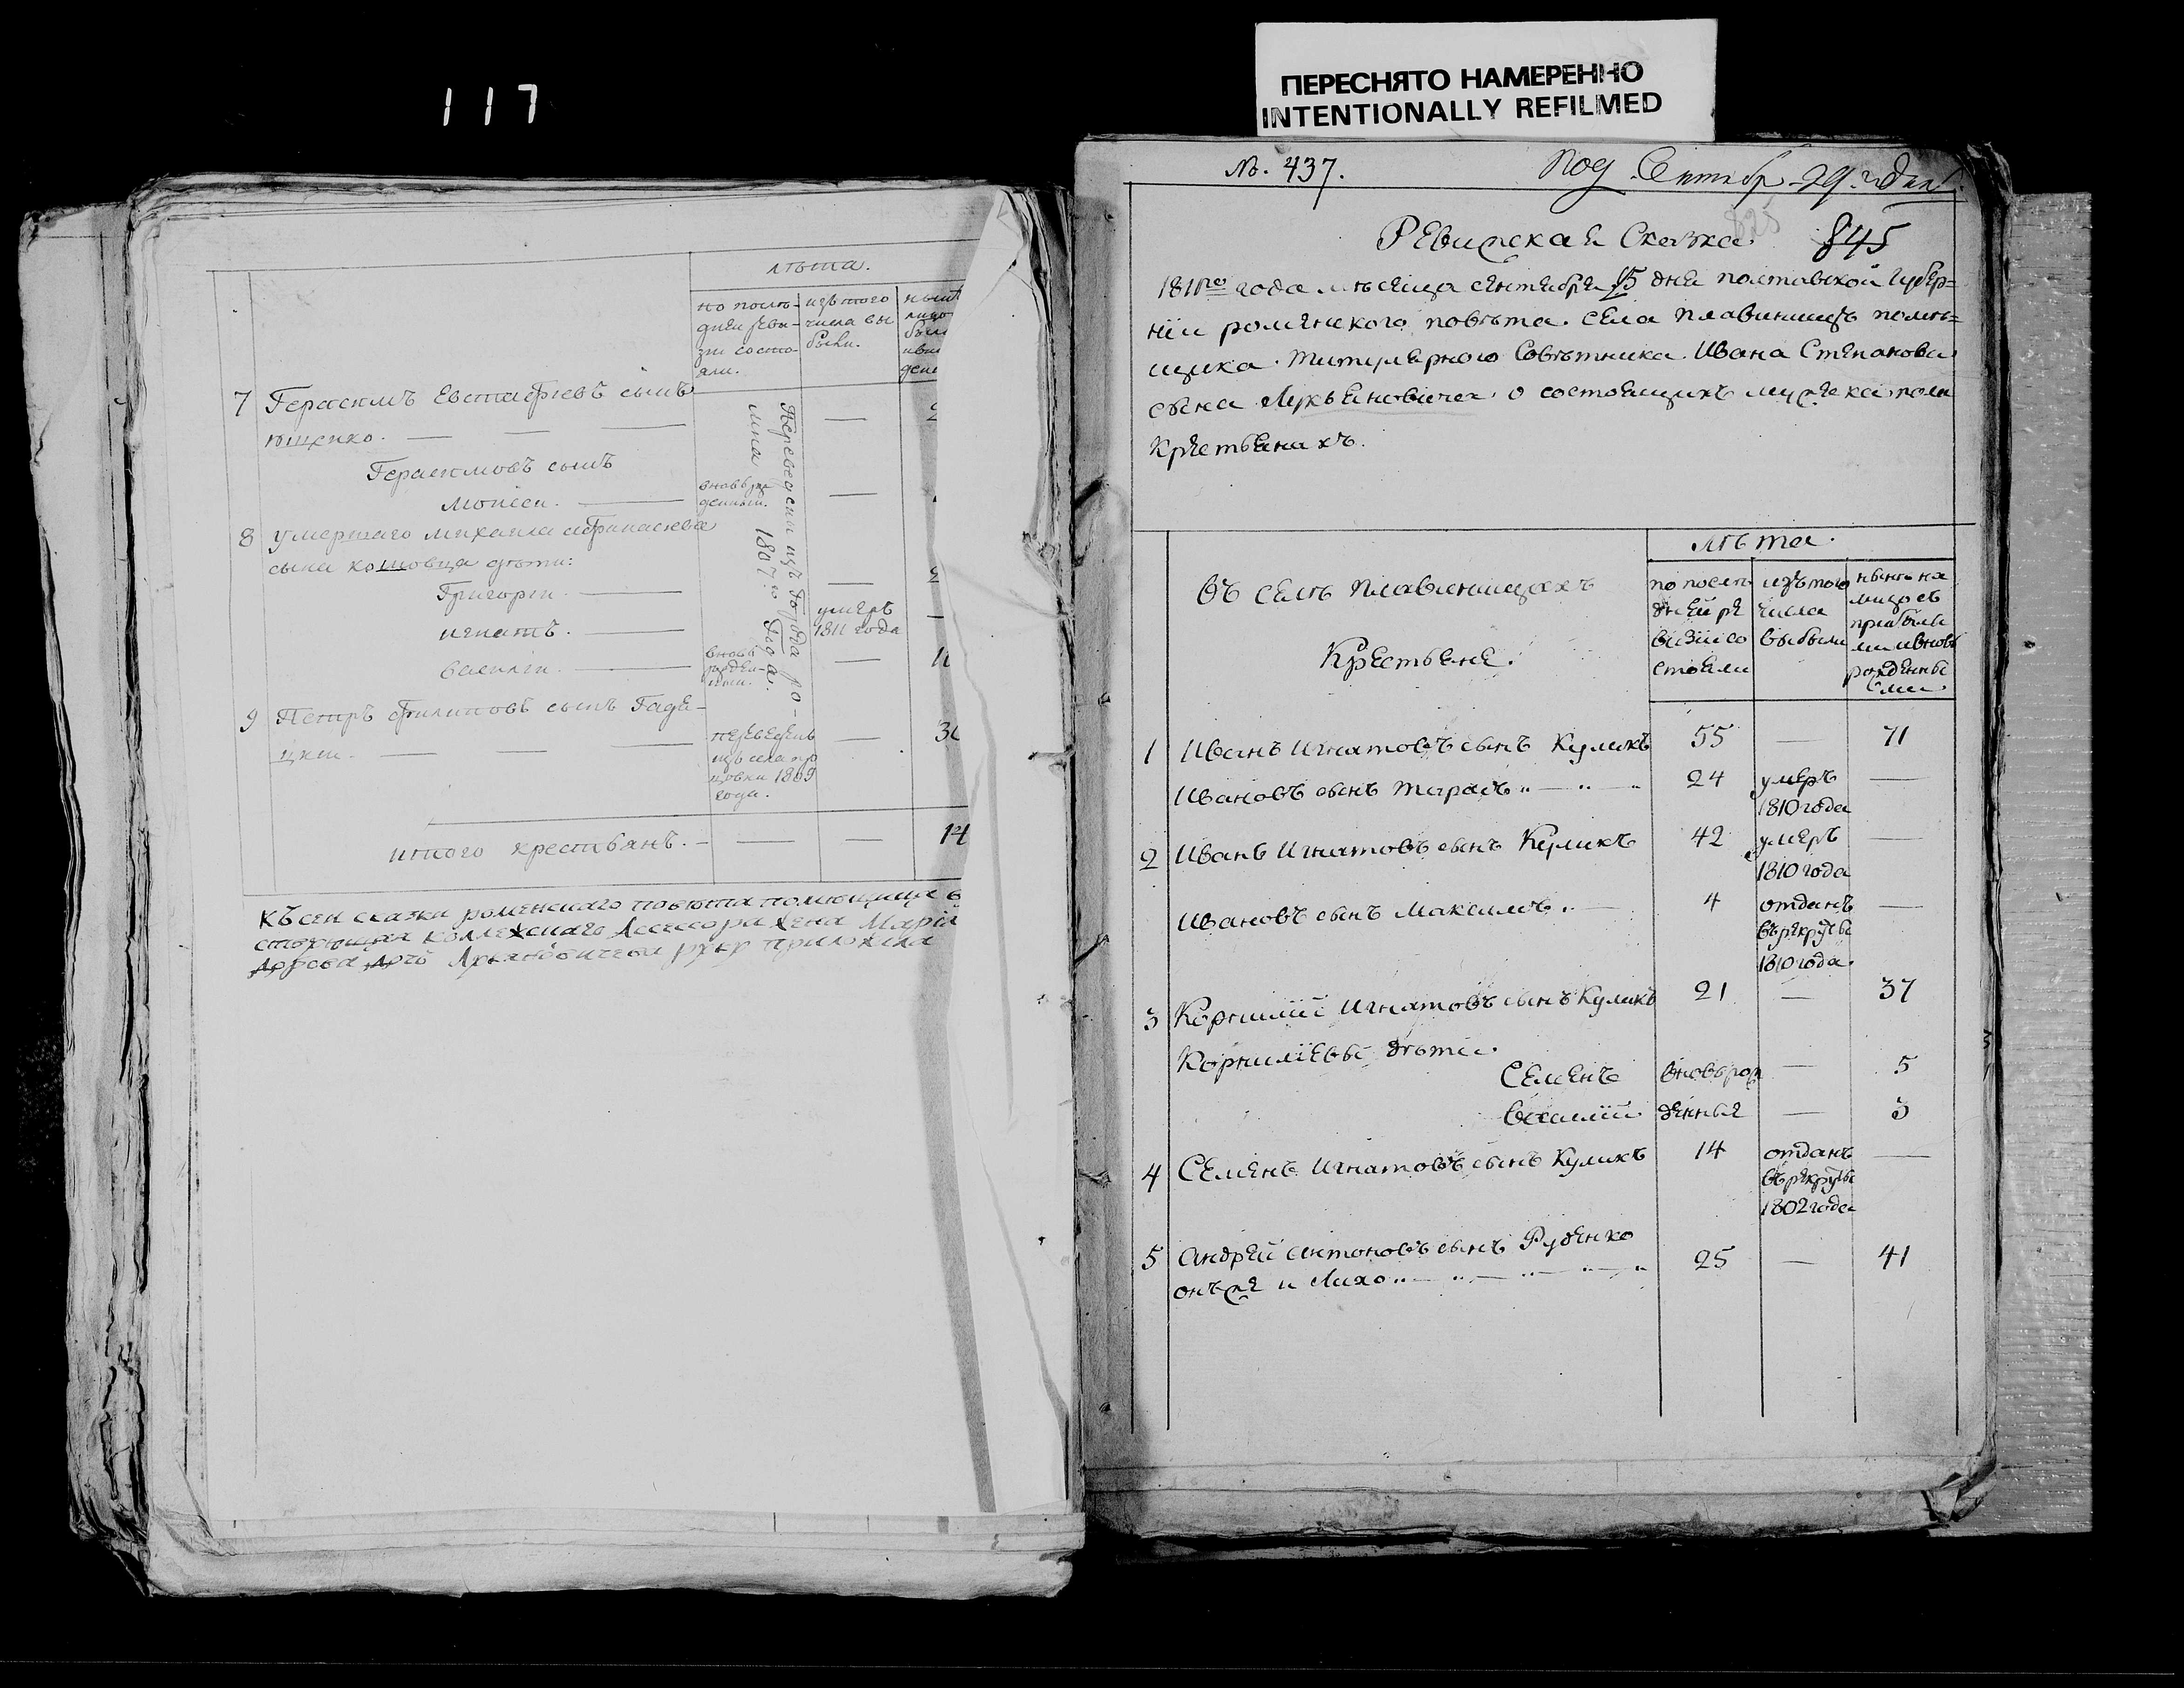 117
ПЕРЕСНЯТО НАМЕРЕННО
INTENTIONALLY REFILMED
лѣта.
по послѣ-
дней реви-
зіи состо-
яли.
изъ того
числа вы
были.
7 Герасимъ Евстафіевъ сынъ
ющенко. — — —
Герасимовъ сынъ
Моисей. —
вновь ро
денный.
8 умершаго михаила афанасіева
сына комовца дѣти:
Григорій. —
игнатъ. —
умеръ
1811 года
василій. —
вновь
рожден-
ный.
Переведены изъ Города ро-
мна 1807го Года.
9 Петръ филиповъ сынъ Гадя-
цкій. — — —
переведенъ
изъ села
1809
года.
итого крестьянъ. — — — 14
Къ сей сказки роменскаго повѣта помещица
коллежскаго Асесора жена Марія
Лукьяновичева руку приложила
№. 437.
Под Сентябр 29. дня
Ревижская Сказка. 845
1811го года мѣсяца сентября 15 дня полтавской Губер=
ніи роменского повѣта. села плавинищъ помѣ=
щика. титулярного Совѣтника. Ивана Степанова
сына Лукьяновича. о состоящихъ мужеска пола
крестьянахъ.
въ селѣ плавинищахъ
Крестьяне.
лѣта.
по послѣ
дней ре
визіи со
стояли
изъ того
числа
выбыли
нынѣ на
лицо съ
прибылы
ми и вновь
рожденны
ми.
1 Иванъ Игнатовъ сынъ Куликъ 55 — 71
Ивановъ сынъ Тарасъ „ — „ — „ 24 умеръ —
1810 года
2 Иванъ Игнатовъ сынъ Куликъ 42 умеръ —
1810 года
Ивановъ сынъ Максимъ. — 4 отданъ —
въ рекруты
1810 года.
3 Корнилій Игнатовъ сынъ Куликъ 21 — 37
Корниліевы дѣти.
Семенъ вновь рож — 5
Василій денные — 3
4 Семенъ Игнатовъ сынъ Куликъ 14 отданъ —
въ рекруты
1802 года
5 Андрей Антоновъ сынъ Руденко
онъ же и Лихо „ — „ — „ — „ — „ 25 — 41